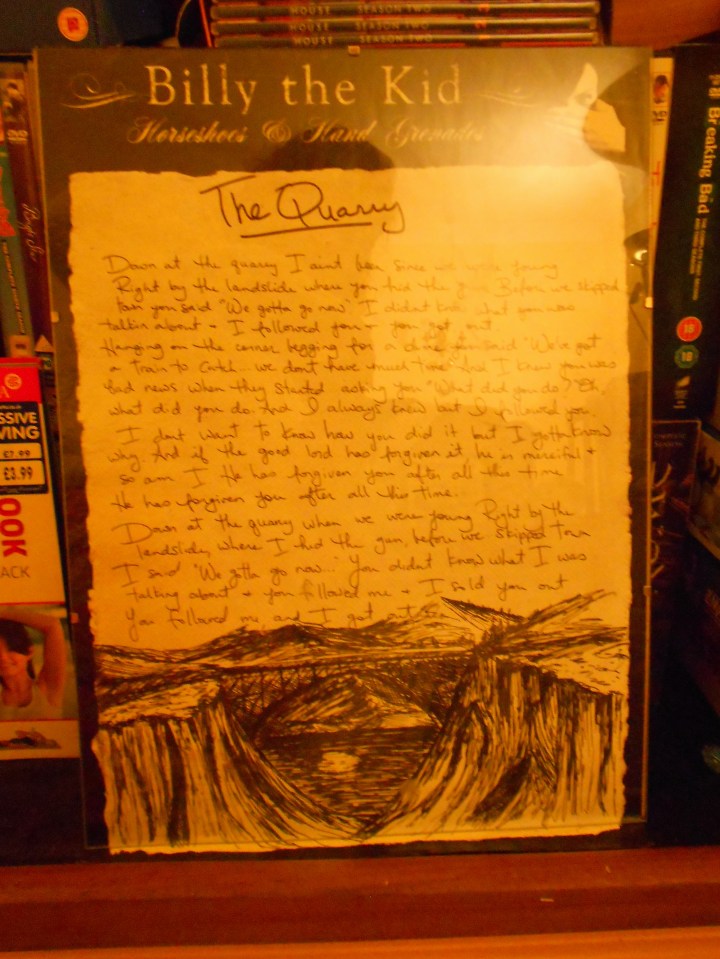 HOUSE SEASON TWO
HOUSE SEASON TWO
HOUSE SEASON TWO
18
Billy the Kid
Horseshoes & Hand Grenades
The Quarry
Down at the quarry I aint been since we were young
Right by the landslide where you hid the gun. Before we skipped
town you said "We gotta go now" I didnt know what you was
talkin about + I followed you + you got out
Hanging on the corner begging for a dime you said "We've got
a train to catch... we dont have much time" And I knew you was
bad news when they started asking you "What did you do?" Oh,
what did you do. And I always knew but I followed you
I dont want to know how you did it but I gotta know
why. And if the good lord has forgiven it, he is merciful +
so am I He has forgiven you after all this time
He has forgiven you after all this time.
Down at the quarry when we were young Right by the
landslide, where I hid the gun, before we skipped town
I said "We gotta go now..." You didnt know what I was
talking about + you followed me + I sold you out
You followed me, and I got out
Breaking Bad
18
18
DVD
DVD
SSIVE
VING
£7.99
£3.99
OOK
ACK